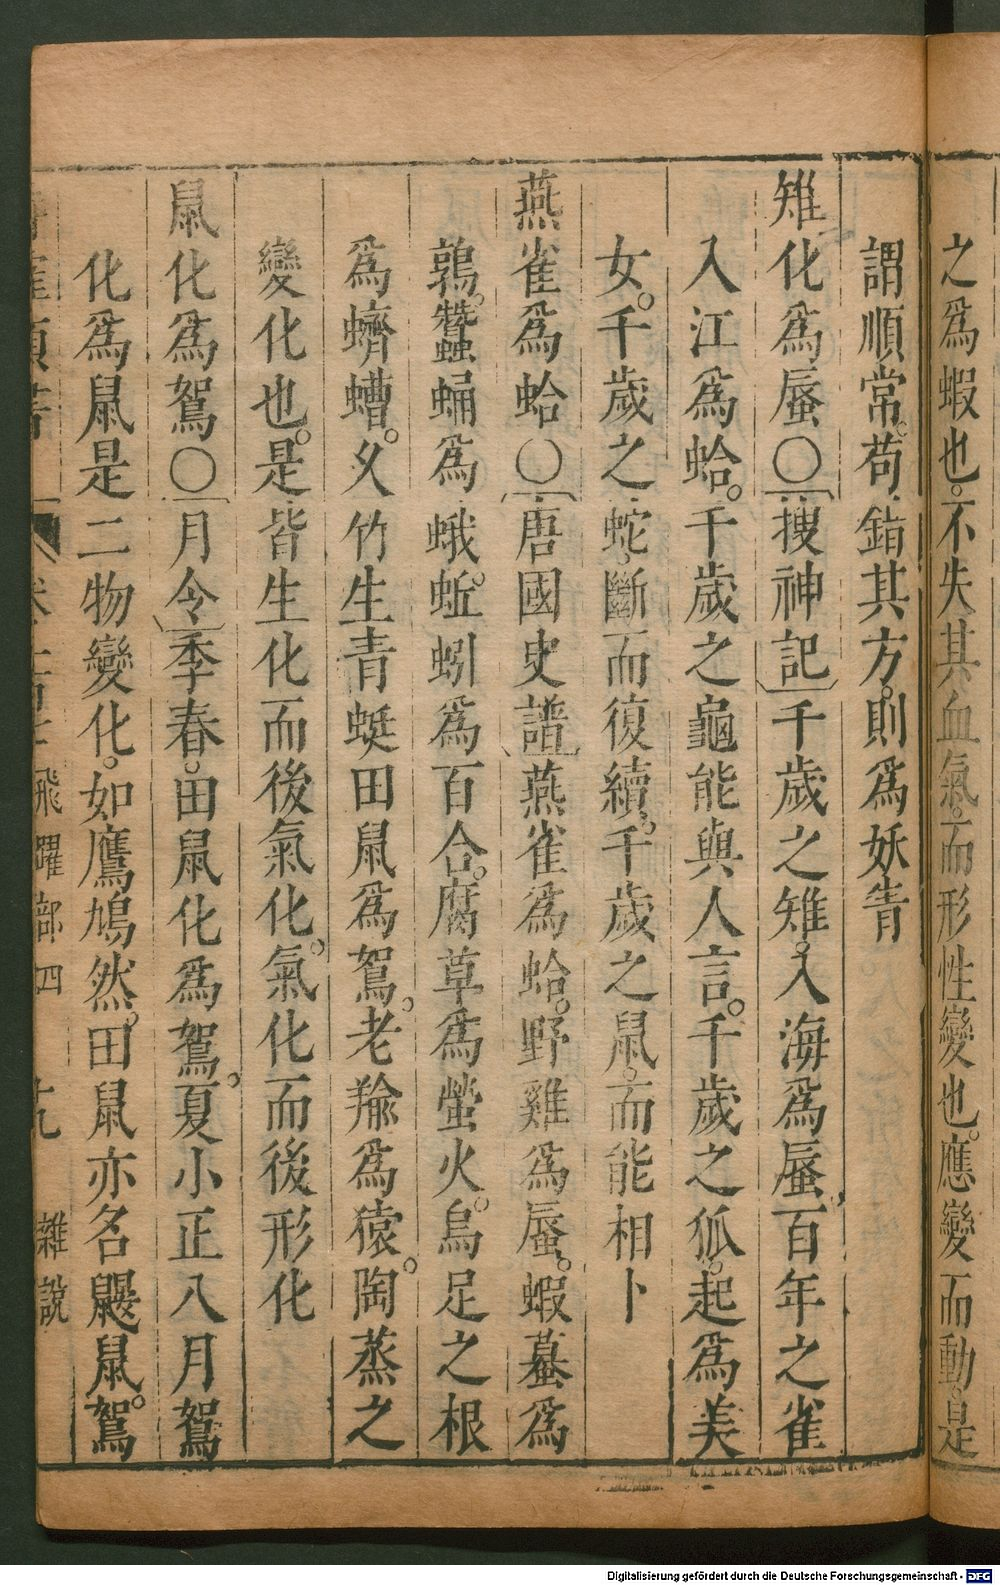 之爲蝦也。不失其血氣。而形性變也。應變而動。是
謂順常。苟錯其方。則爲妖眚
雉化爲蜃○搜神記千歲之雉。入海爲蜃。百年之雀
入江爲蛤。千歲之龜能與人言。千歲之狐。起爲美
女。千歲之蛇。斷而復續。千歲之鼠。而能相卜
燕雀爲蛤○唐國史譜燕雀爲蛤。野雞爲蜃。蝦蟇爲
鶉。蠶蛹爲蛾。蚯蚓爲百合。腐草爲螢火。烏足之根
爲蠐螬。久竹生青蜓田鼠爲鴽。老羭爲猿。陶蒸之
變化也。是皆生化而後氣化。氣化而後形化
鼠化爲鴽○月令季春。田鼠化爲鴽。夏小正八月鴽
化爲鼠是二物變化。如鷹鳩然。田鼠亦名鼴鼠。鴽
飛躍部四 十九 雜說
Digitalisierung gefördert durch die Deutsche Forschungsgemeinschaft - DFG